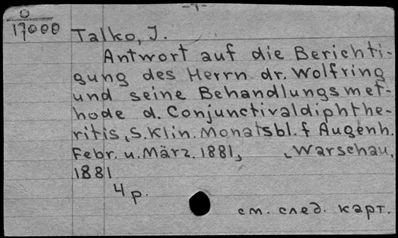 -1-
O
17000
Talko, J.
Antwort auf die Berichti-
gung des Herrn dr. Wolfring
und seine Behandlungsmet-
hode d. Conjunctivaldiphthe-
ritis, S. Klin. Monatsbl. f Augenh.
Febr. u. März. 1881, , Warschau,
1881
4 p.
см. след. карт.